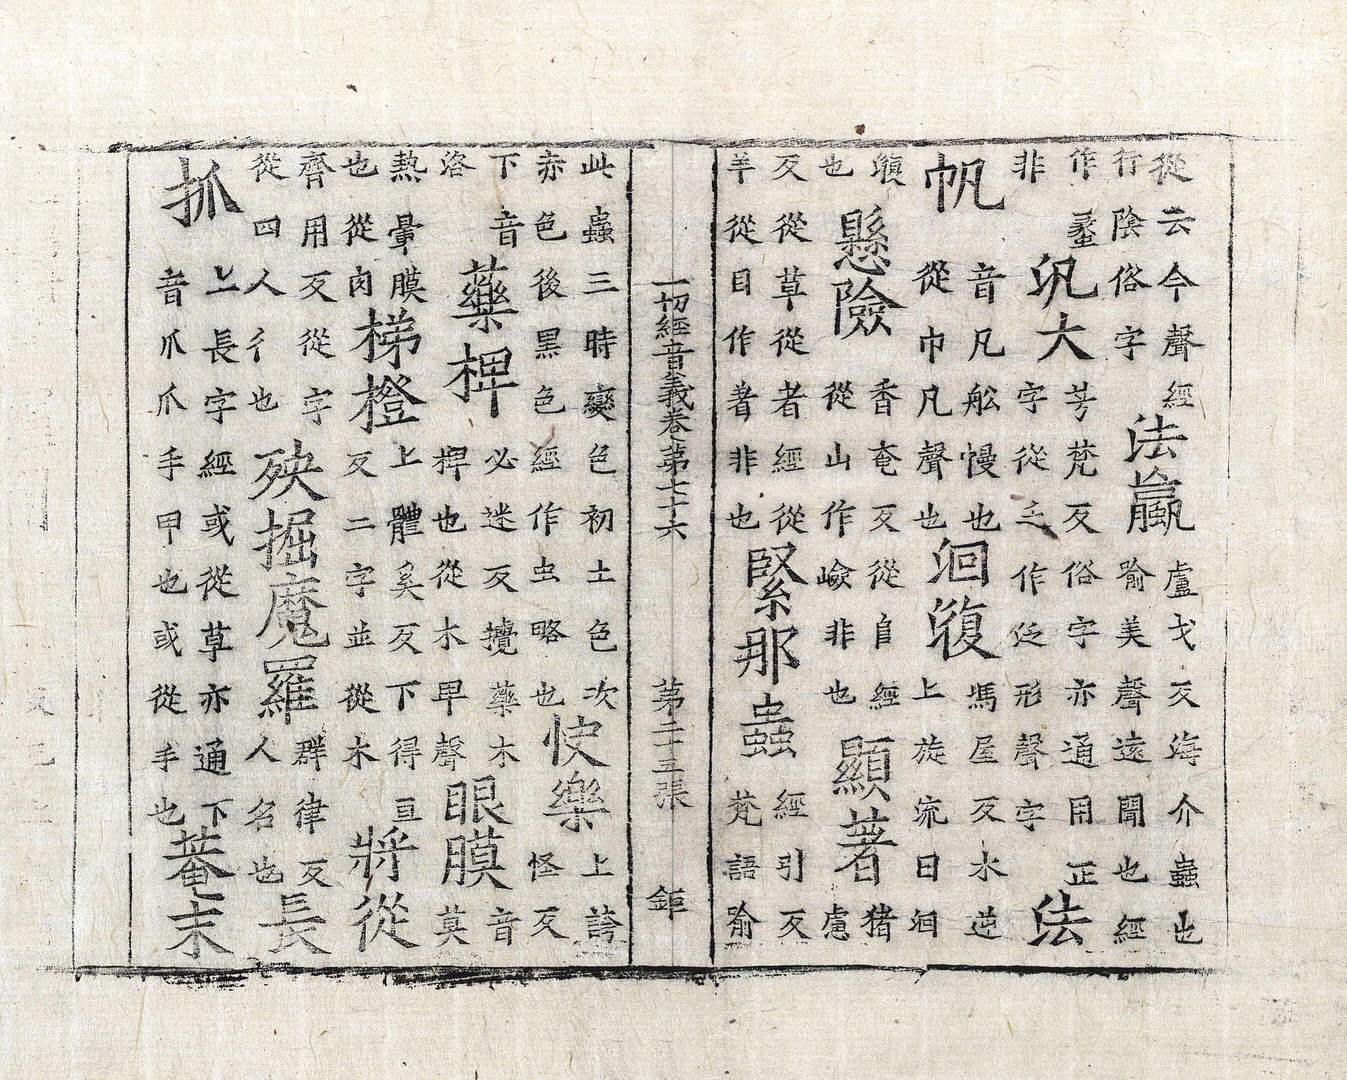 從云今聲經
行陰俗字
法蠃
盧戈反海介蟲也
喻美聲遠聞也經
作蠡
非
汎大
芳梵反俗字亦通用正
字從乏作泛形聲字
法
帆
音凡舩慢也
從巾凡聲也
洄澓
馮屋反水逆
上旋流曰洄
澓
也
懸險
香奄反從𨸏經
從山作嶮非也
顯著
猪
慮
反從草從者經從
羊從目作着非也
緊那蟲
經引反
梵語喻
一切經音義卷第七十六 第二十五張 鉅
此蟲三時變色初土色次
赤色後黑色經作虫略也
快樂
上誇
怪反
下音
洛
藥椑
必迷反攪藥木
椑也從木卑聲
眼膜
音
莫
熱暈膜
也從肉
梯橙
上體奚反下得亘
反二字並從木
將從
齊用反從字
從四人彳也
殃掘魔羅
群律反
人名也
長
抓
上長字經或從草亦通下
音爪爪手甲也或從手也
菴末